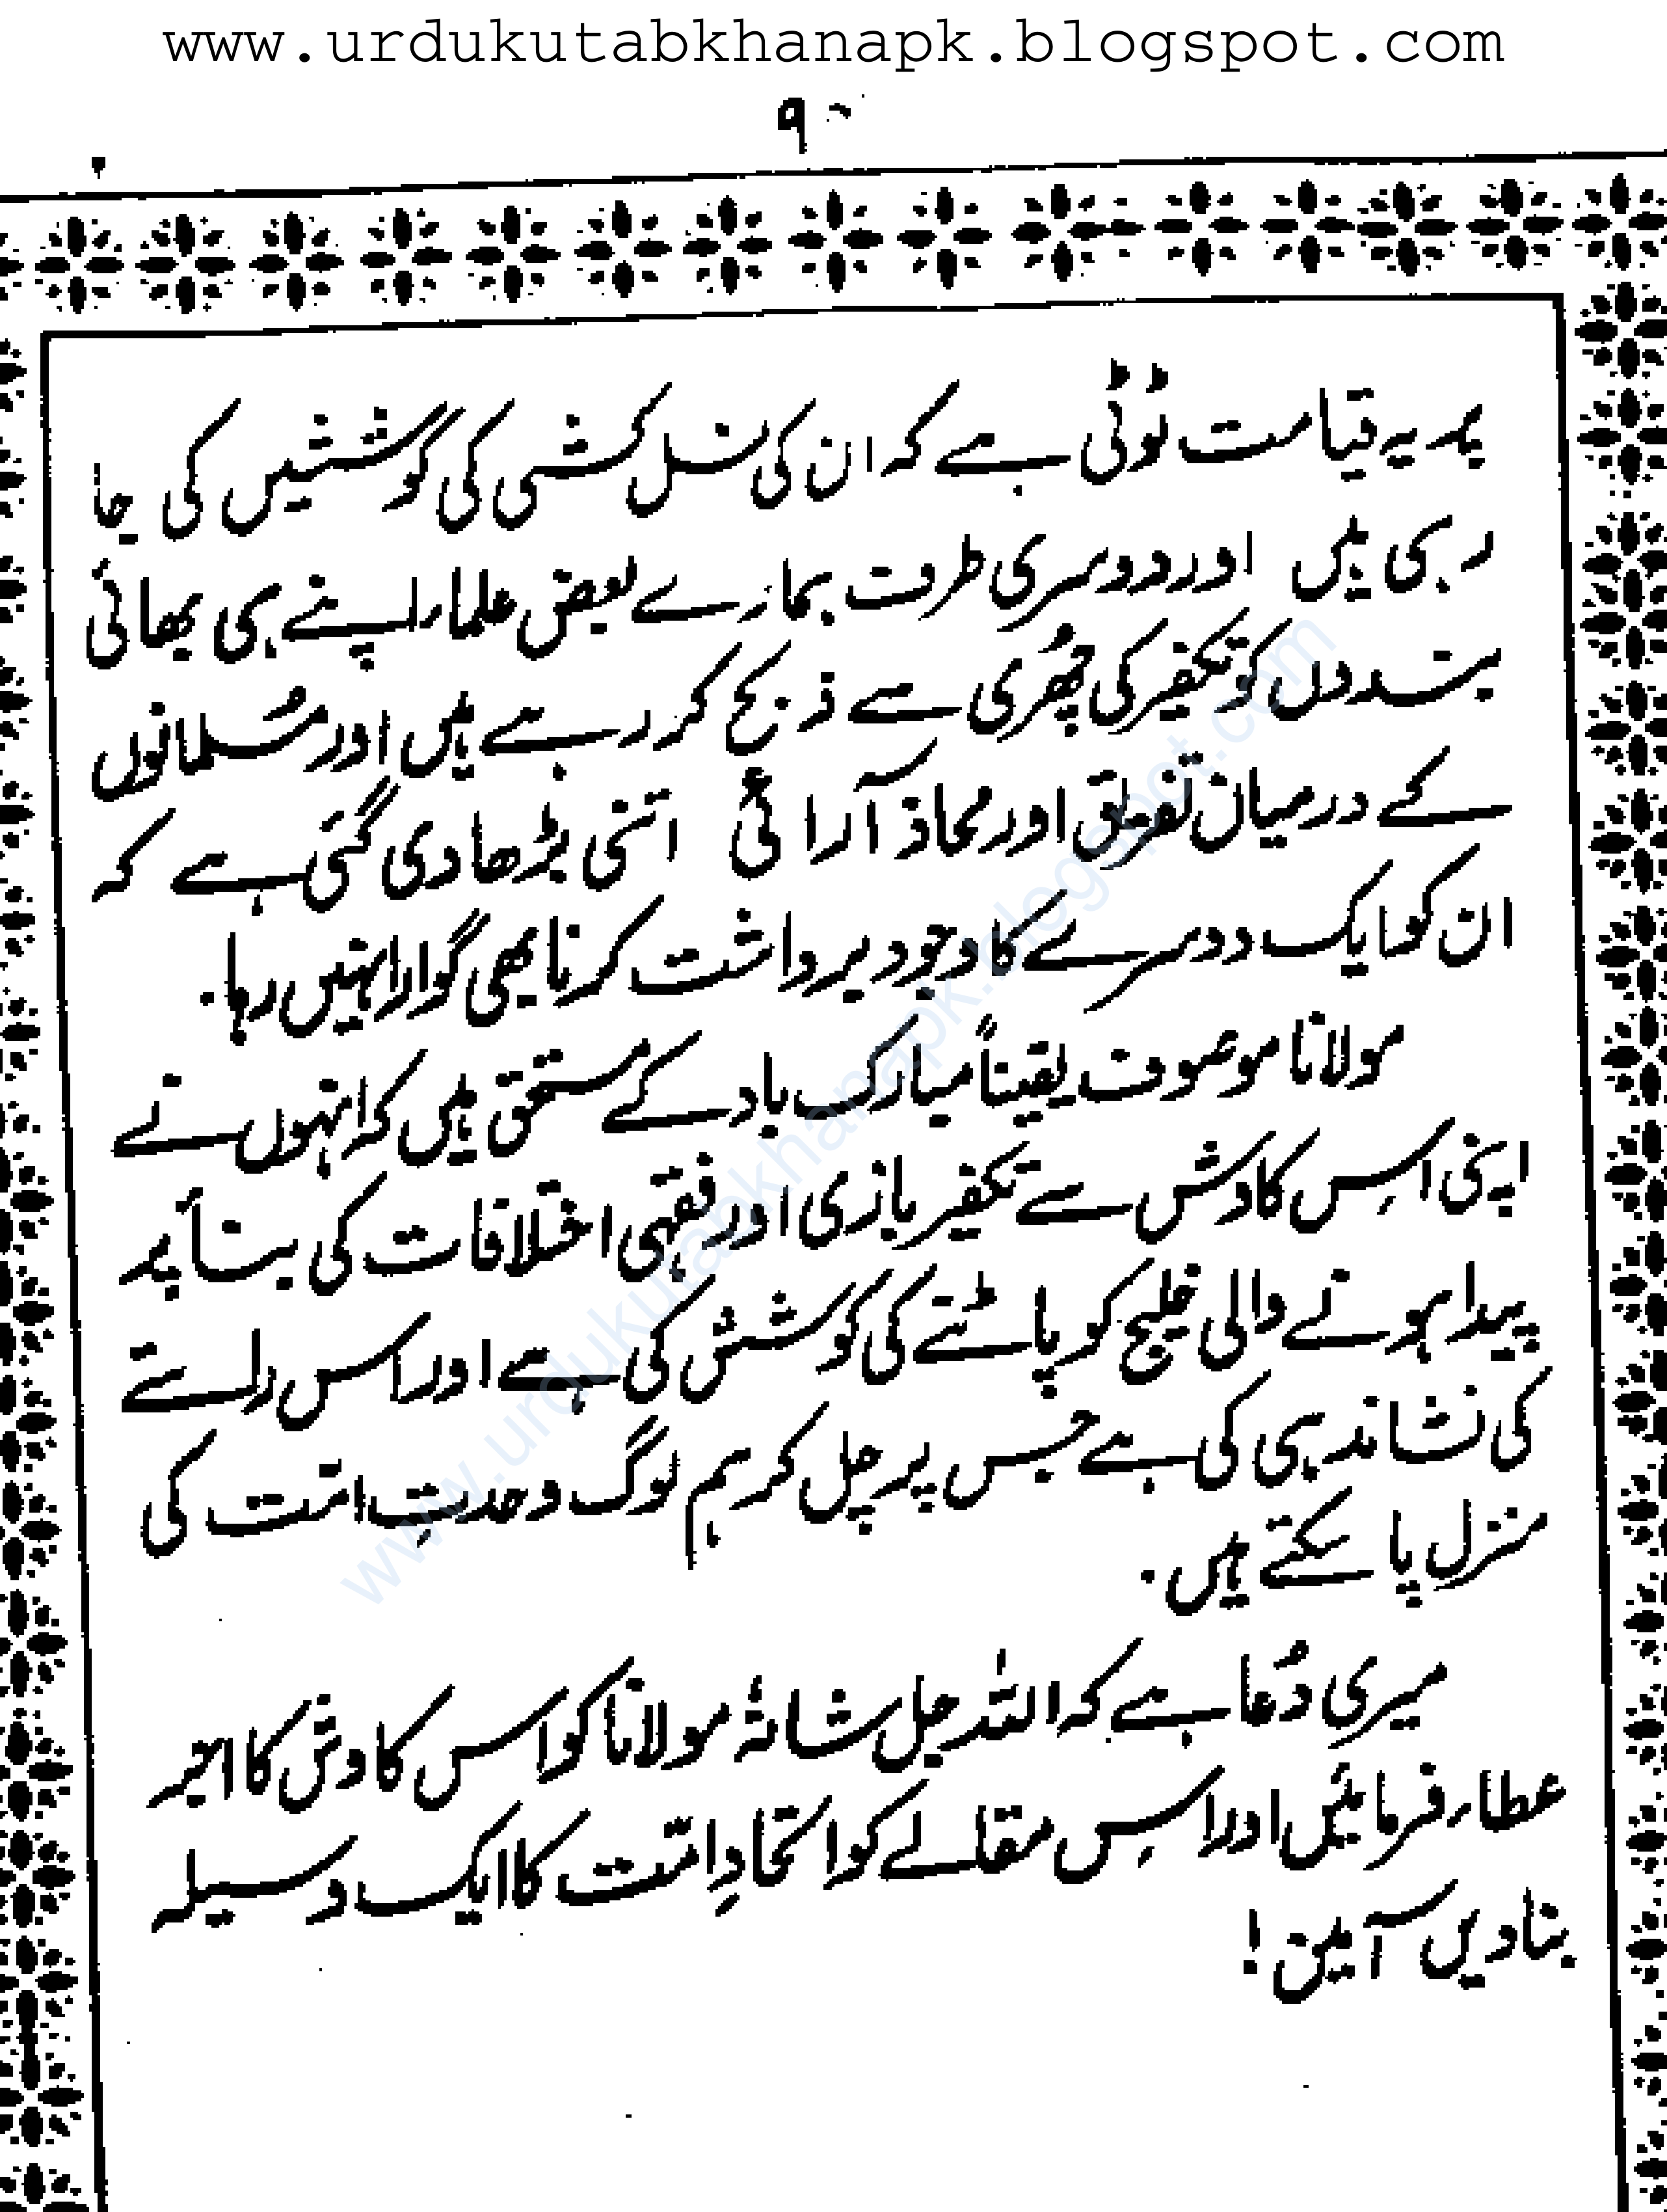 www.urdukutabkhanapk.blogspot.com
۹
پر یہ قیامت ٹوٹی ہے کہ ان کی نسل کشی کی کوششیں کی جا
رہی ہیں اور دوسری طرف ہمارے بعض علماء اپنے ہی بھائی
بندوں کو تکفیر کی چھُری سے ذبح کر رہے ہیں اور مُسلمانوں
کے درمیان تفریق اور محاذ آرائی اتنی بڑھا دی گئی ہے کہ
ان کو ایک دوسرے کا وجود برداشت کرنا بھی گوارا نہیں رہا۔
مولانا موصوف یقیناً مبارک باد کے مستحق ہیں کہ انہوں نے
اپنی اس کاوش سے تکفیر بازی اور فقہی اختلافات کی بنأ پر
پیدا ہونے والی خلیج کو پاٹنے کی کوشش کی ہے اور اس راستے
کی نشاندہی کی ہے جس پر چل کر ہم لوگ وحدتِ امّت کی
منزل پا سکتے ہیں۔
میری دُعا ہے کہ اللہ جل شانہٗ مولانا کو اس کاوش کا اجر
عطاء فرمائیں اور اسِ مقالے کو اتحادِ امّت کا ایک وسیلہ
بنا دیں آمین!
www.urdukutabkhanapk.blogspot.com